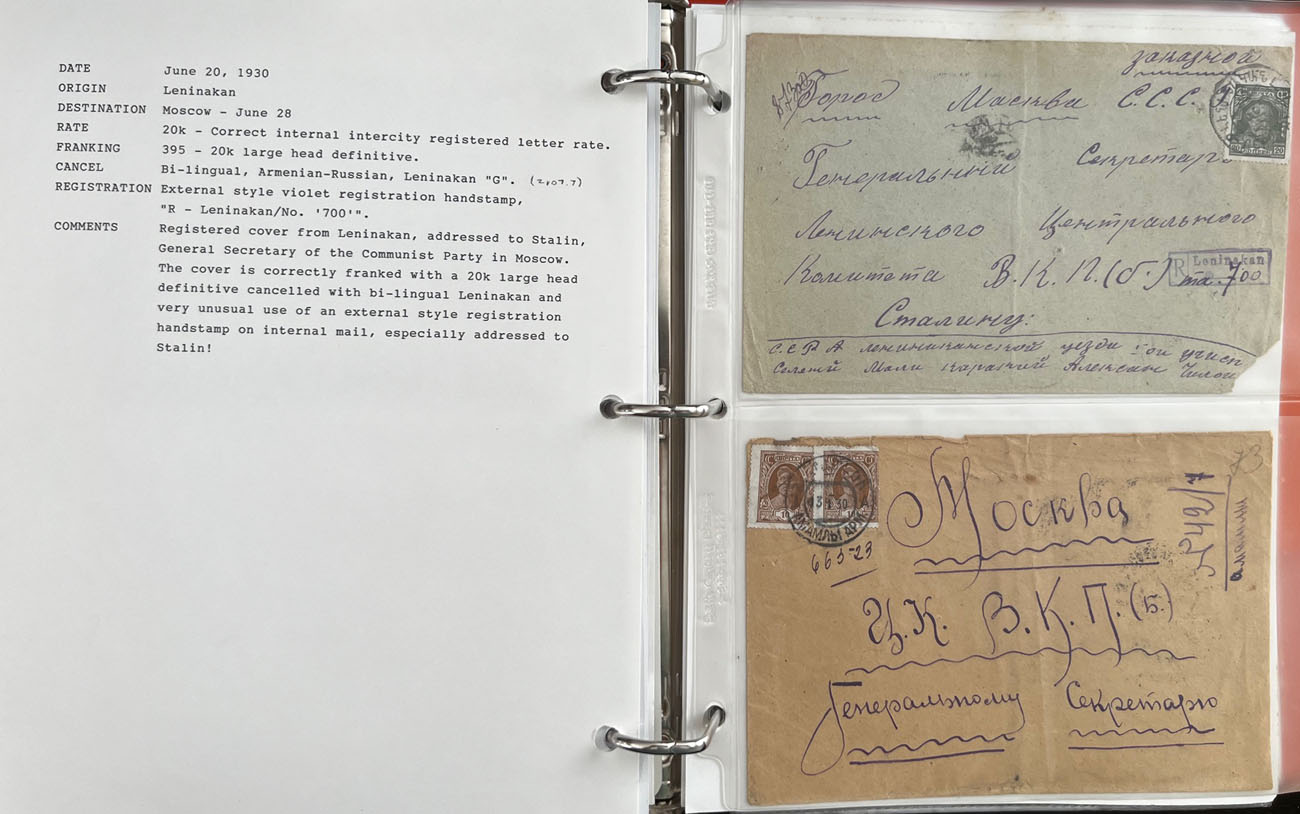 DATE June 20, 1930
ORIGIN Leninakan
DESTINATION Moscow - June 28
RATE 20k - Correct internal intercity registered letter rate.
FRANKING 395 - 20k large head definitive.
CANCEL Bi-lingual, Armenian-Russian, Leninakan "G". (2,07.7)
REGISTRATION External style violet registration handstamp,
"R - Leninakan/No. '700'".
COMMENTS Registered cover from Leninakan, addressed to Stalin,
General Secretary of the Communist Party in Moscow.
The cover is correctly franked with a 20k large head
definitive cancelled with bi-lingual Leninakan and
very unusual use of an external style registration
handstamp on internal mail, especially addressed to
Stalin!
заказной
Город Масква С.С.С.
Генеральний Секретарь
Ленинского Центрального
Комитета В.К.П.(б.)
R Leninakan
700
Сталину:
20 20
10
665-23
Москва
73
Ц.К. В.К.П.(б.)
Генеральному Секретарю